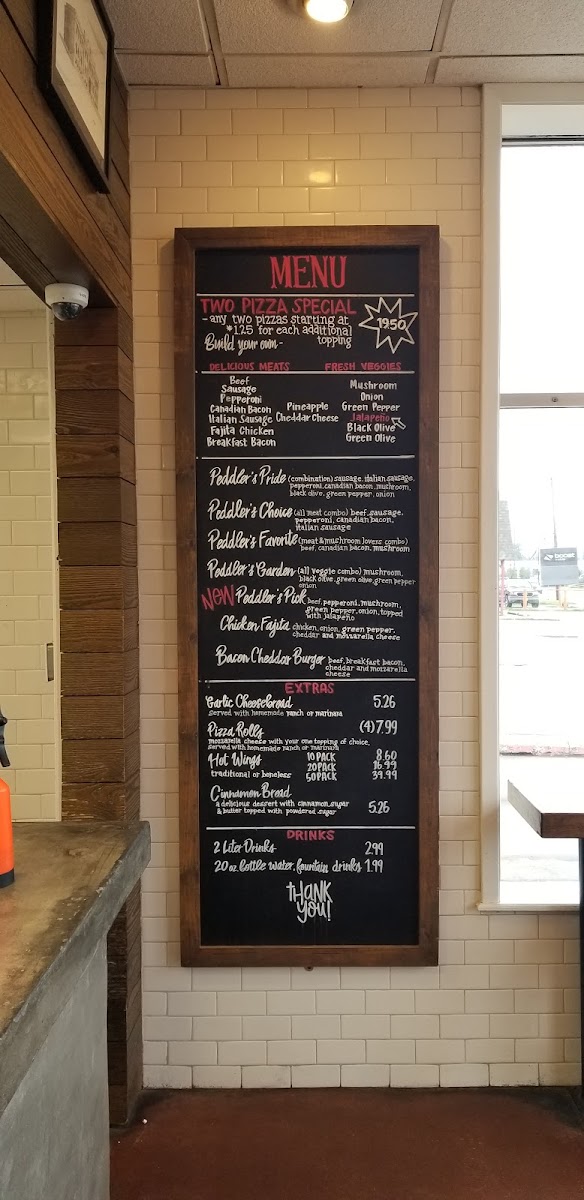 MENU
TWO PIZZA SPECIAL
- any two pizzas starting at
19.50
*1.25 for each additional
topping
Build your own -
DELICIOUS MEATS
FRESH VEGGIES
Beef
Sausage
Pepperoni
Canadian Bacon
Italian Sausage
Fajita Chicken
Breakfast Bacon
Pineapple
Cheddar Cheese
Mushroom
Onion
Green Pepper
Jalapeño
Black Olive
Green Olive
Peddler's Pride (combination) sausage, italian sausage,
pepperoni, canadian bacon, mushroom,
black olive, green pepper, onion
Peddler's Choice (all meat combo) beef, sausage,
pepperoni, canadian bacon,
italian sausage
Peddler's Favorite (meat & mushroom lovers combo)
beef, canadian bacon, mushroom
Peddler's Garden (all veggie combo) mushroom,
black olive, green olive, green pepper
onion
NEW Peddler's Pick beef, pepperoni, mushroom,
green pepper, onion, topped
with jalapeño
Chicken Fajita chicken, onion, green pepper,
cheddar and mozzarella cheese
Bacon Cheddar Burger beef, breakfast bacon,
cheddar and mozzarella
cheese
EXTRAS
Garlic Cheesebread 5.26
served with homemade ranch or marinara
Pizza Rolls (4) 7.99
mozzarella cheese with your one topping of choice,
served with homemade ranch or marinara
Hot Wings 10 PACK 8.60
traditional or boneless 20 PACK 16.99
50 PACK 39.99
Cinnamon Bread
a delicious dessert with cinnamon, sugar
& butter topped with powdered sugar 5.26
DRINKS
2 Liter Drinks 2.99
20 oz. bottle water, fountain drinks 1.99
THANK
YOU!
boost